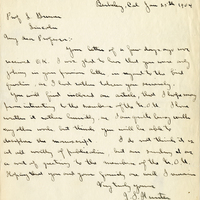 Berkeley, Cal Jan 21st 1904
Prof. L. Bruner
Lincoln
My dear Professor:-
Your letter of a few days ago was
received O.K. I was glad to hear that you were only
joking in your previous letter in regard to the bird
question as I had rather taken you seriously.
You will find enclosed an article that I hope may
prove interesting to the members of the N.O.U. I have
written it rather hurriedly, as I am quite busy with
my other work but think you will be able to
decipher the manuscript. I do not think it is
at all worthy of publication, but am sending it as
a sort of greeting to the members of the N.O.U.
Hoping that you and yours family are well I remain
Very truly yours,
J. S. Hunter